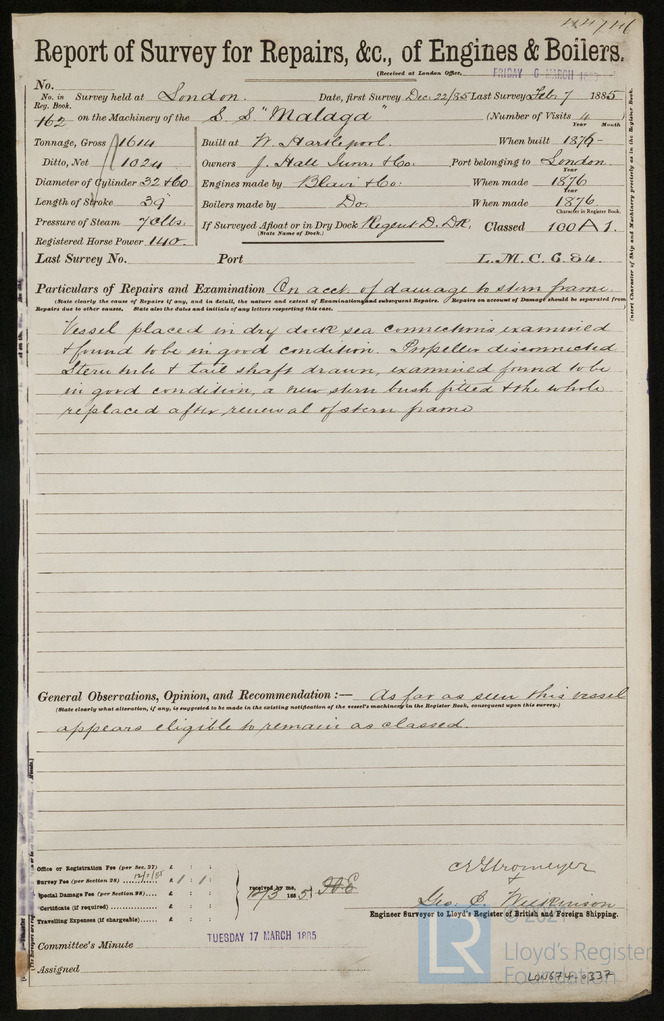 Report of Survey for Repairs, &c., of Engines & Boilers.
(Received at London Office, FRIDAY 6 MARCH 1885
No.
No. in Reg. Book. Survey held at London. Date, first Survey Dec. 22/85 Last Survey Feb. 7 1885
162 on the Machinery of the S. S. "Malaga" (Number of Visits 4
Year Month
Tonnage, Gross 1614 Built at W. Hartlepool. When built 1876
Ditto, Net 1024 Owners J. Hall Junr. & Co. Port belonging to London
Year
Diameter of Cylinder 32 & 60 Engines made by Blair & Co: When made 1876
Year
Length of Stroke 39 Boilers made by Do. When made 1876
Character in Register Book.
Pressure of Steam 70 lbs. If Surveyed Afloat or in Dry Dock Regent D. Dk. Classed 100 A 1.
(State Name of Dock.)
Registered Horse Power 140.
Last Survey No. Port L. M. C. 6. 84.
Particulars of Repairs and Examination On acct. of damage to stern frame.
(State clearly the cause of Repairs if any, and in detail, the nature and extent of Examinations and subsequent Repairs. Repairs on account of Damage should be separated from
Repairs due to other causes, State also the dates and initials of any letters respecting this case.
Vessel placed in dry dock sea connections examined
& found to be in good condition. Propeller disconnected
Stern tube & tail shaft drawn, examined found to be
in good condition, a new stern bush fitted & the whole
replaced after renewal of stern frame
(Insert Character of Ship and Machinery precisely as in the Register Book.
General Observations, Opinion, and Recommendation :— As far as seen this vessel
(State clearly what alteration, if any, is suggested to be made in the existing notification of the vessel's machinery in the Register Book, consequent upon this survey.)
appears eligible to remain as classed.
Office or Registration Fee (per Sec. 27) £ : :
Survey Fee (per Section 28) £ 1 : 1 :
Special Damage Fee (per Section 28) £ : :
Certificate (if required) £ : :
Travelling Expenses (if chargeable) £ : :
received by me,
12/3 1885
C E Stromeyer
&
Geo. C. Wilkinson
Engineer Surveyor to Lloyd's Register of British and Foreign Shipping.
Committee's Minute TUESDAY 17 MARCH 1885
Assigned
© 2021
LR
Lloyd's Register
Foundation
LON674-0337